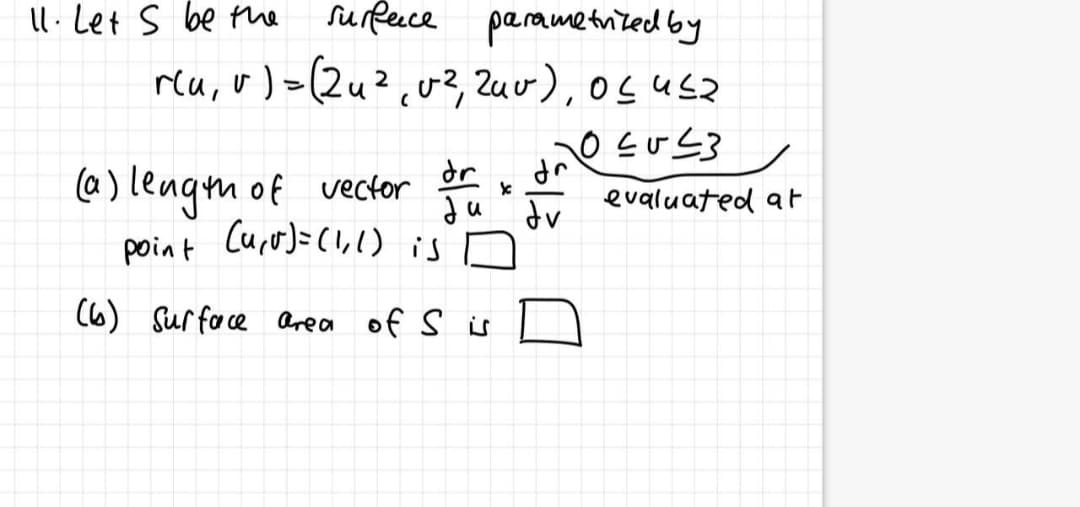 11. Let S be the surface parametrized by
r(u, v) = (2u², v², 2uv), 0 ≤ u ≤ 2
0 ≤ v ≤ 3
(a) length of vector ∂r/∂u × ∂r/∂v evaluated at
point (u,v)=(1,1) is □
(b) surface area of S is □